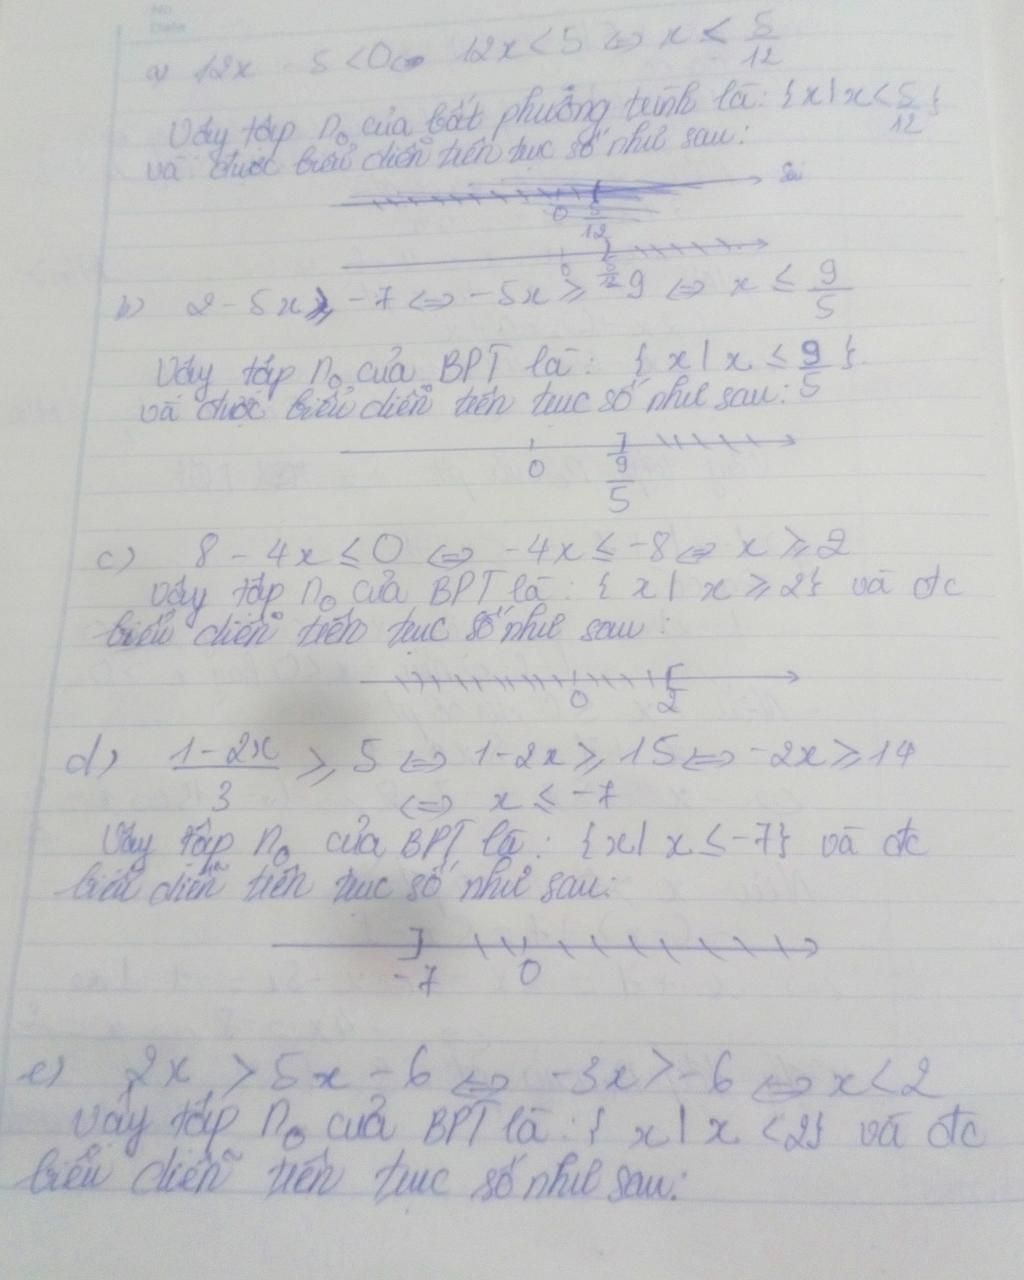 No.
Date
a) 12x - 5 < 0 ⇔ 12x < 5 ⇔ x < 5/12
Vậy tập n₀ của bất phương trình là: {x | x < 5/12}
và được biểu diễn trên trục số như sau:
0 5/12
0 5/12
b) 2 - 5x ≥ -7 ⇔ -5x ≥ -9 ⇔ x ≤ 9/5
Vậy tập n₀ của BPT là: { x | x ≤ 9/5 }
và được biểu diễn trên trục số như sau:
0 9/5
c) 8 - 4x ≤ 0 ⇔ -4x ≤ -8 ⇔ x ≥ 2
Vậy tập n₀ của BPT là: { x | x ≥ 2} và đc
biểu diễn trên trục số như sau:
0 2
d) (1-2x)/3 ≥ 5 ⇔ 1-2x ≥ 15 ⇔ -2x ≥ 14
⇔ x ≤ -7
Vậy tập n₀ của BPT là: {x | x ≤ -7} và đc
biểu diễn trên trục số như sau:
-7 0
e) 2x > 5x - 6 ⇔ -3x > -6 ⇔ x < 2
Vậy tập n₀ của BPT là: { x | x < 2} và đc
biểu diễn trên trục số như sau: